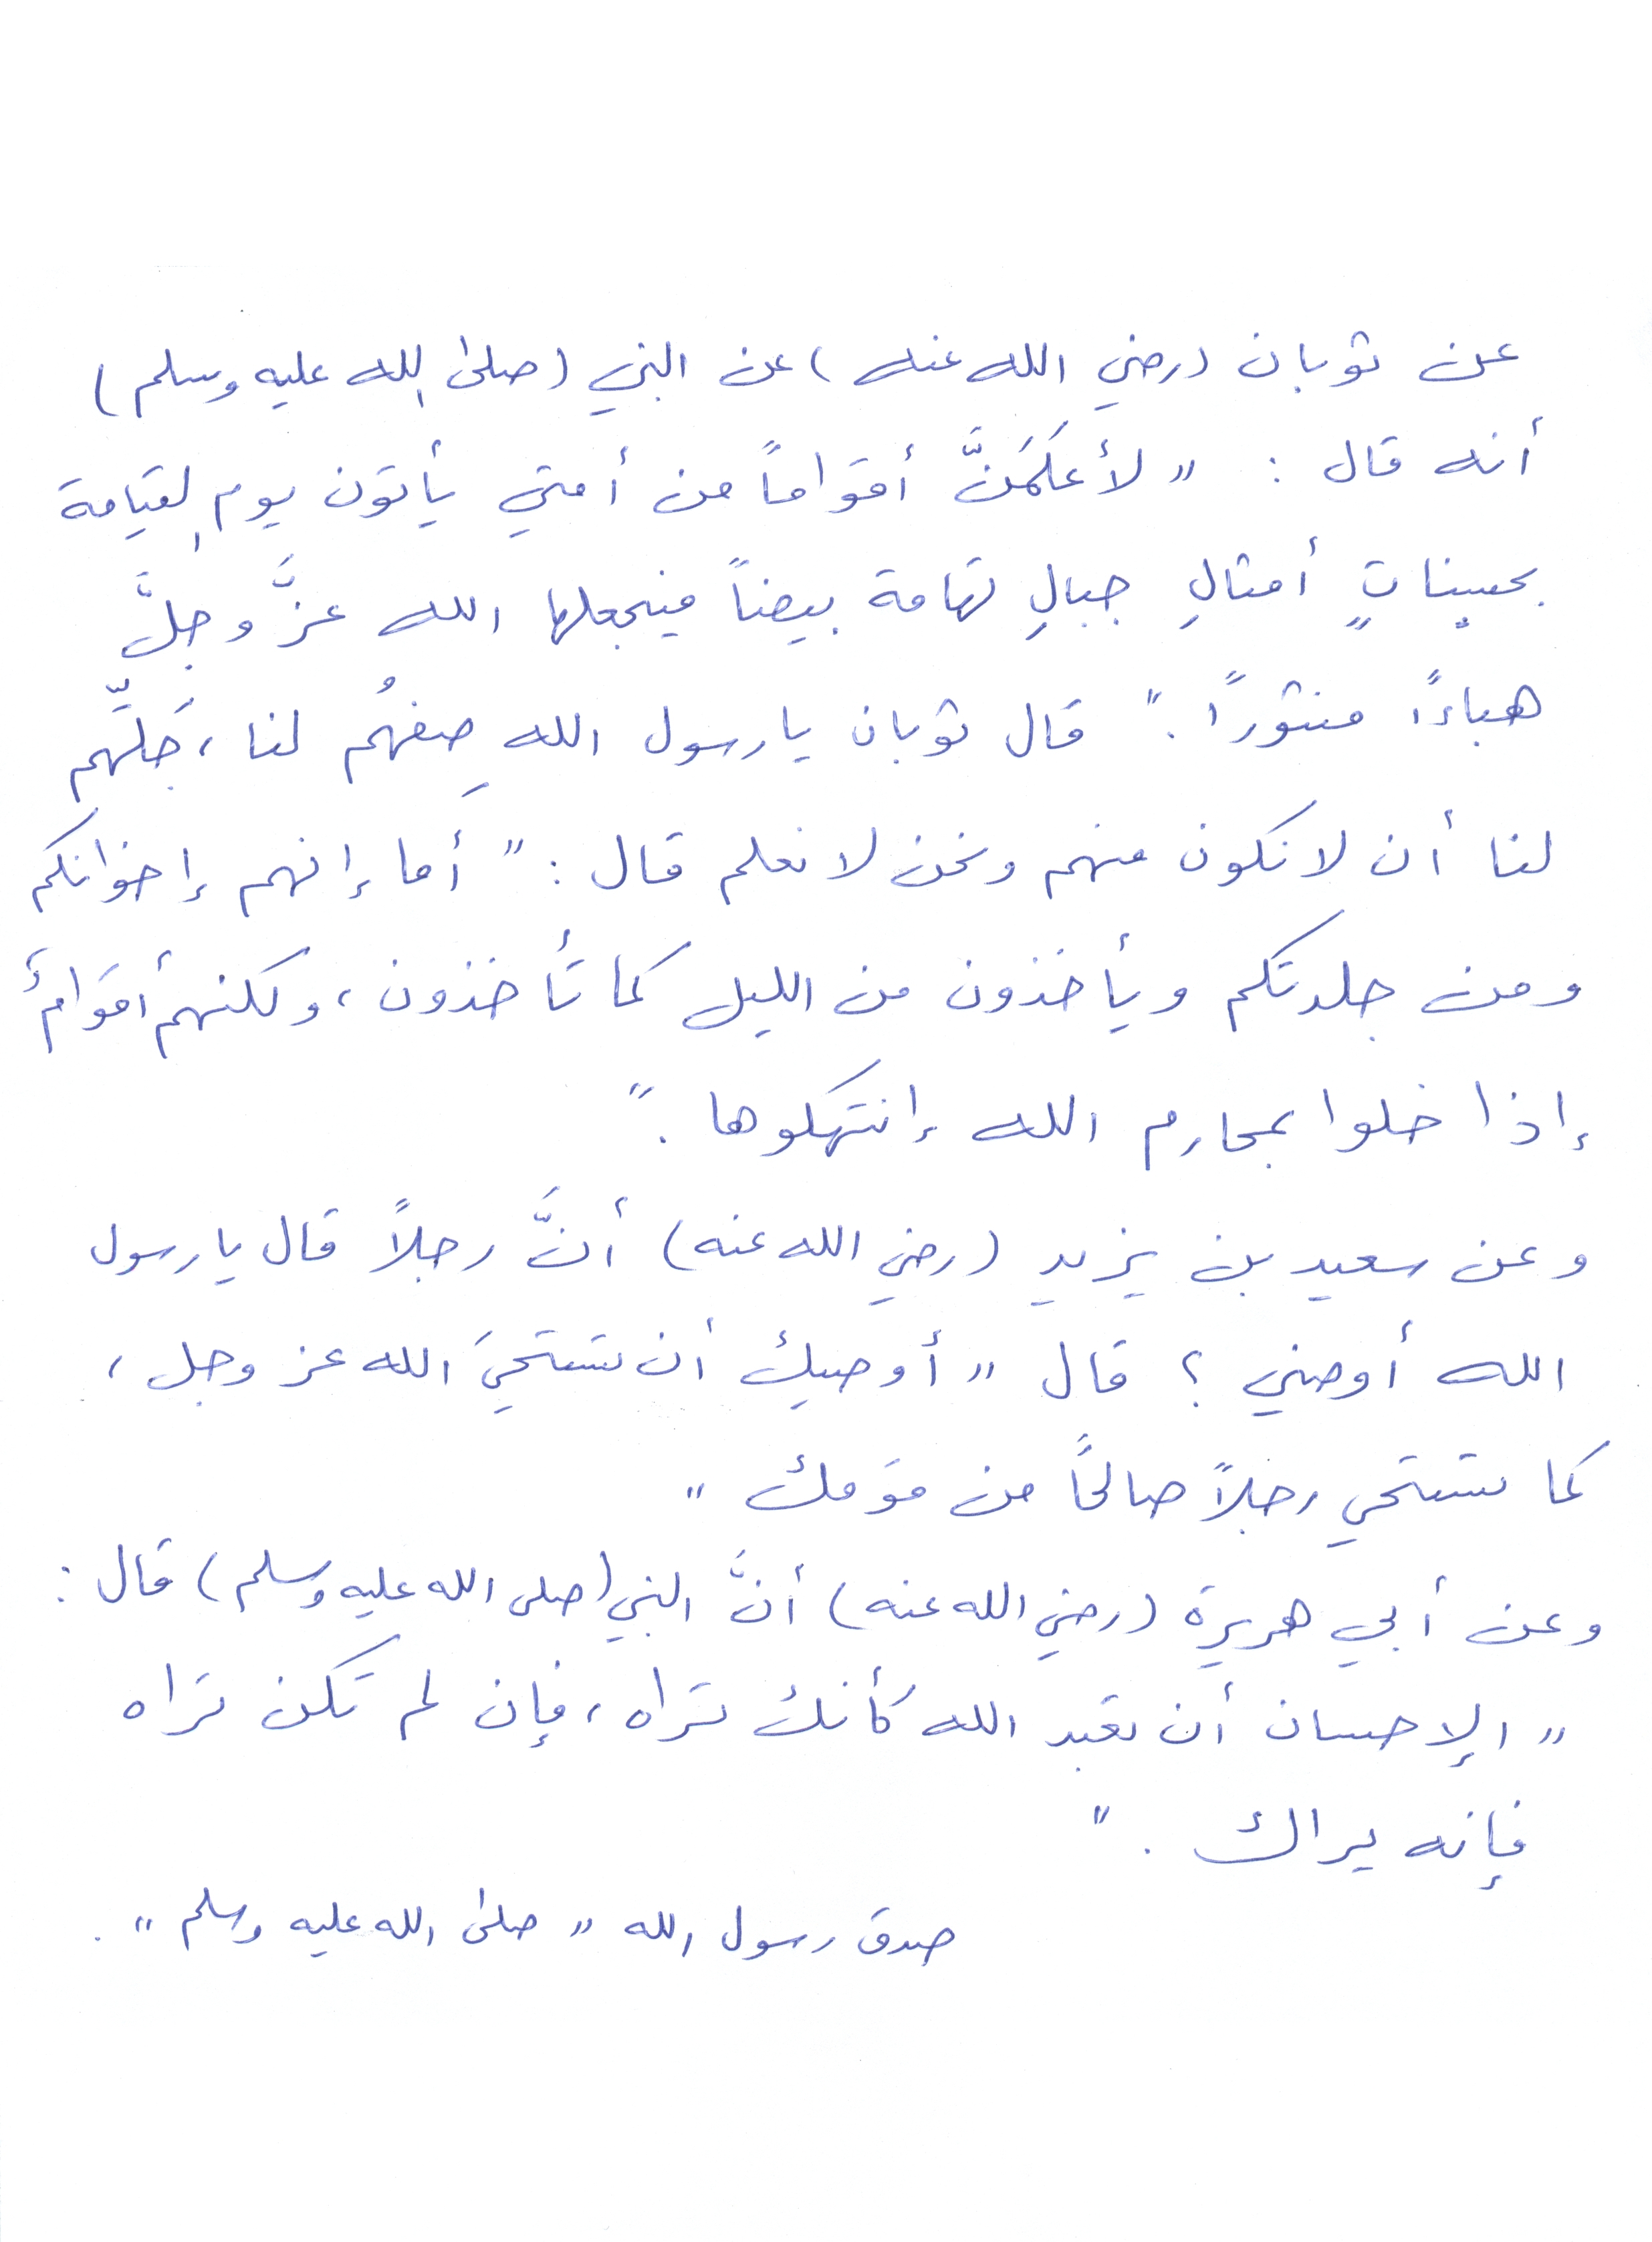 عن ثوبان (رضي الله عنه) عن النبي (صلى الله عليه وسلم)
أنه قال : " لأعلَمَنَّ أقواماً من أمتي يأتون يوم القيامة
بحسناتٍ أمثالِ جبالِ تهامة بيضاً فيجعلها الله عزَّ وجلَّ
هباءًا منثورًا ." قال ثوبان يا رسول الله صِفهُم لنا ، جَلِّهم
لنا أن لا نكون منهم ونحن لا نعلم قال : " أما إنهم إخوانكم
ومن جلدتكم ويأخذون من الليل كما تأخذون ، ولكنهم أقوامٌ
إذا خلوا بمحارم الله إنتهكوها ."
وعن سعيد بن يزيد (رضي الله عنه) أنَّ رجلاً قال يا رسول
الله أوصني ؟ قال " أوصيك أن تستحيَ الله عز وجل ،
كما تستحي رجلاً صالحًا من قومك "
وعن أبي هريرة (رضي الله عنه) أنَّ النبي (صلى الله عليه وسلم) قال :
" الإحسان أن تعبد الله كأنك تراه ، فإن لم تكن تراه
فإنه يراك . "
صدق رسول الله " صلى الله عليه وسلم " .